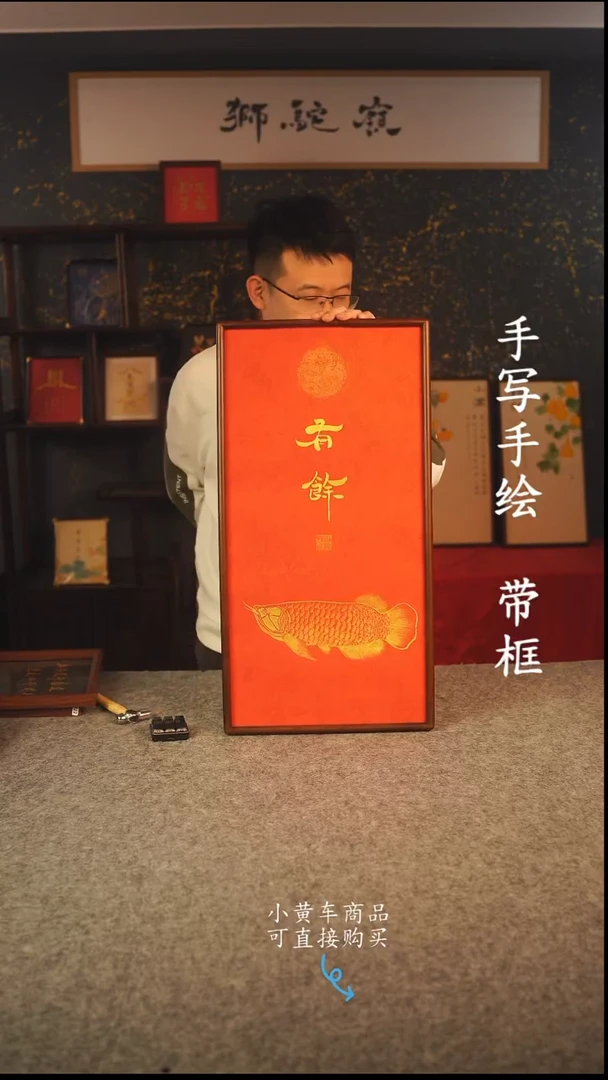 獅駝
有
餘
手写手绘 带框
小黄车商品
可直接购买